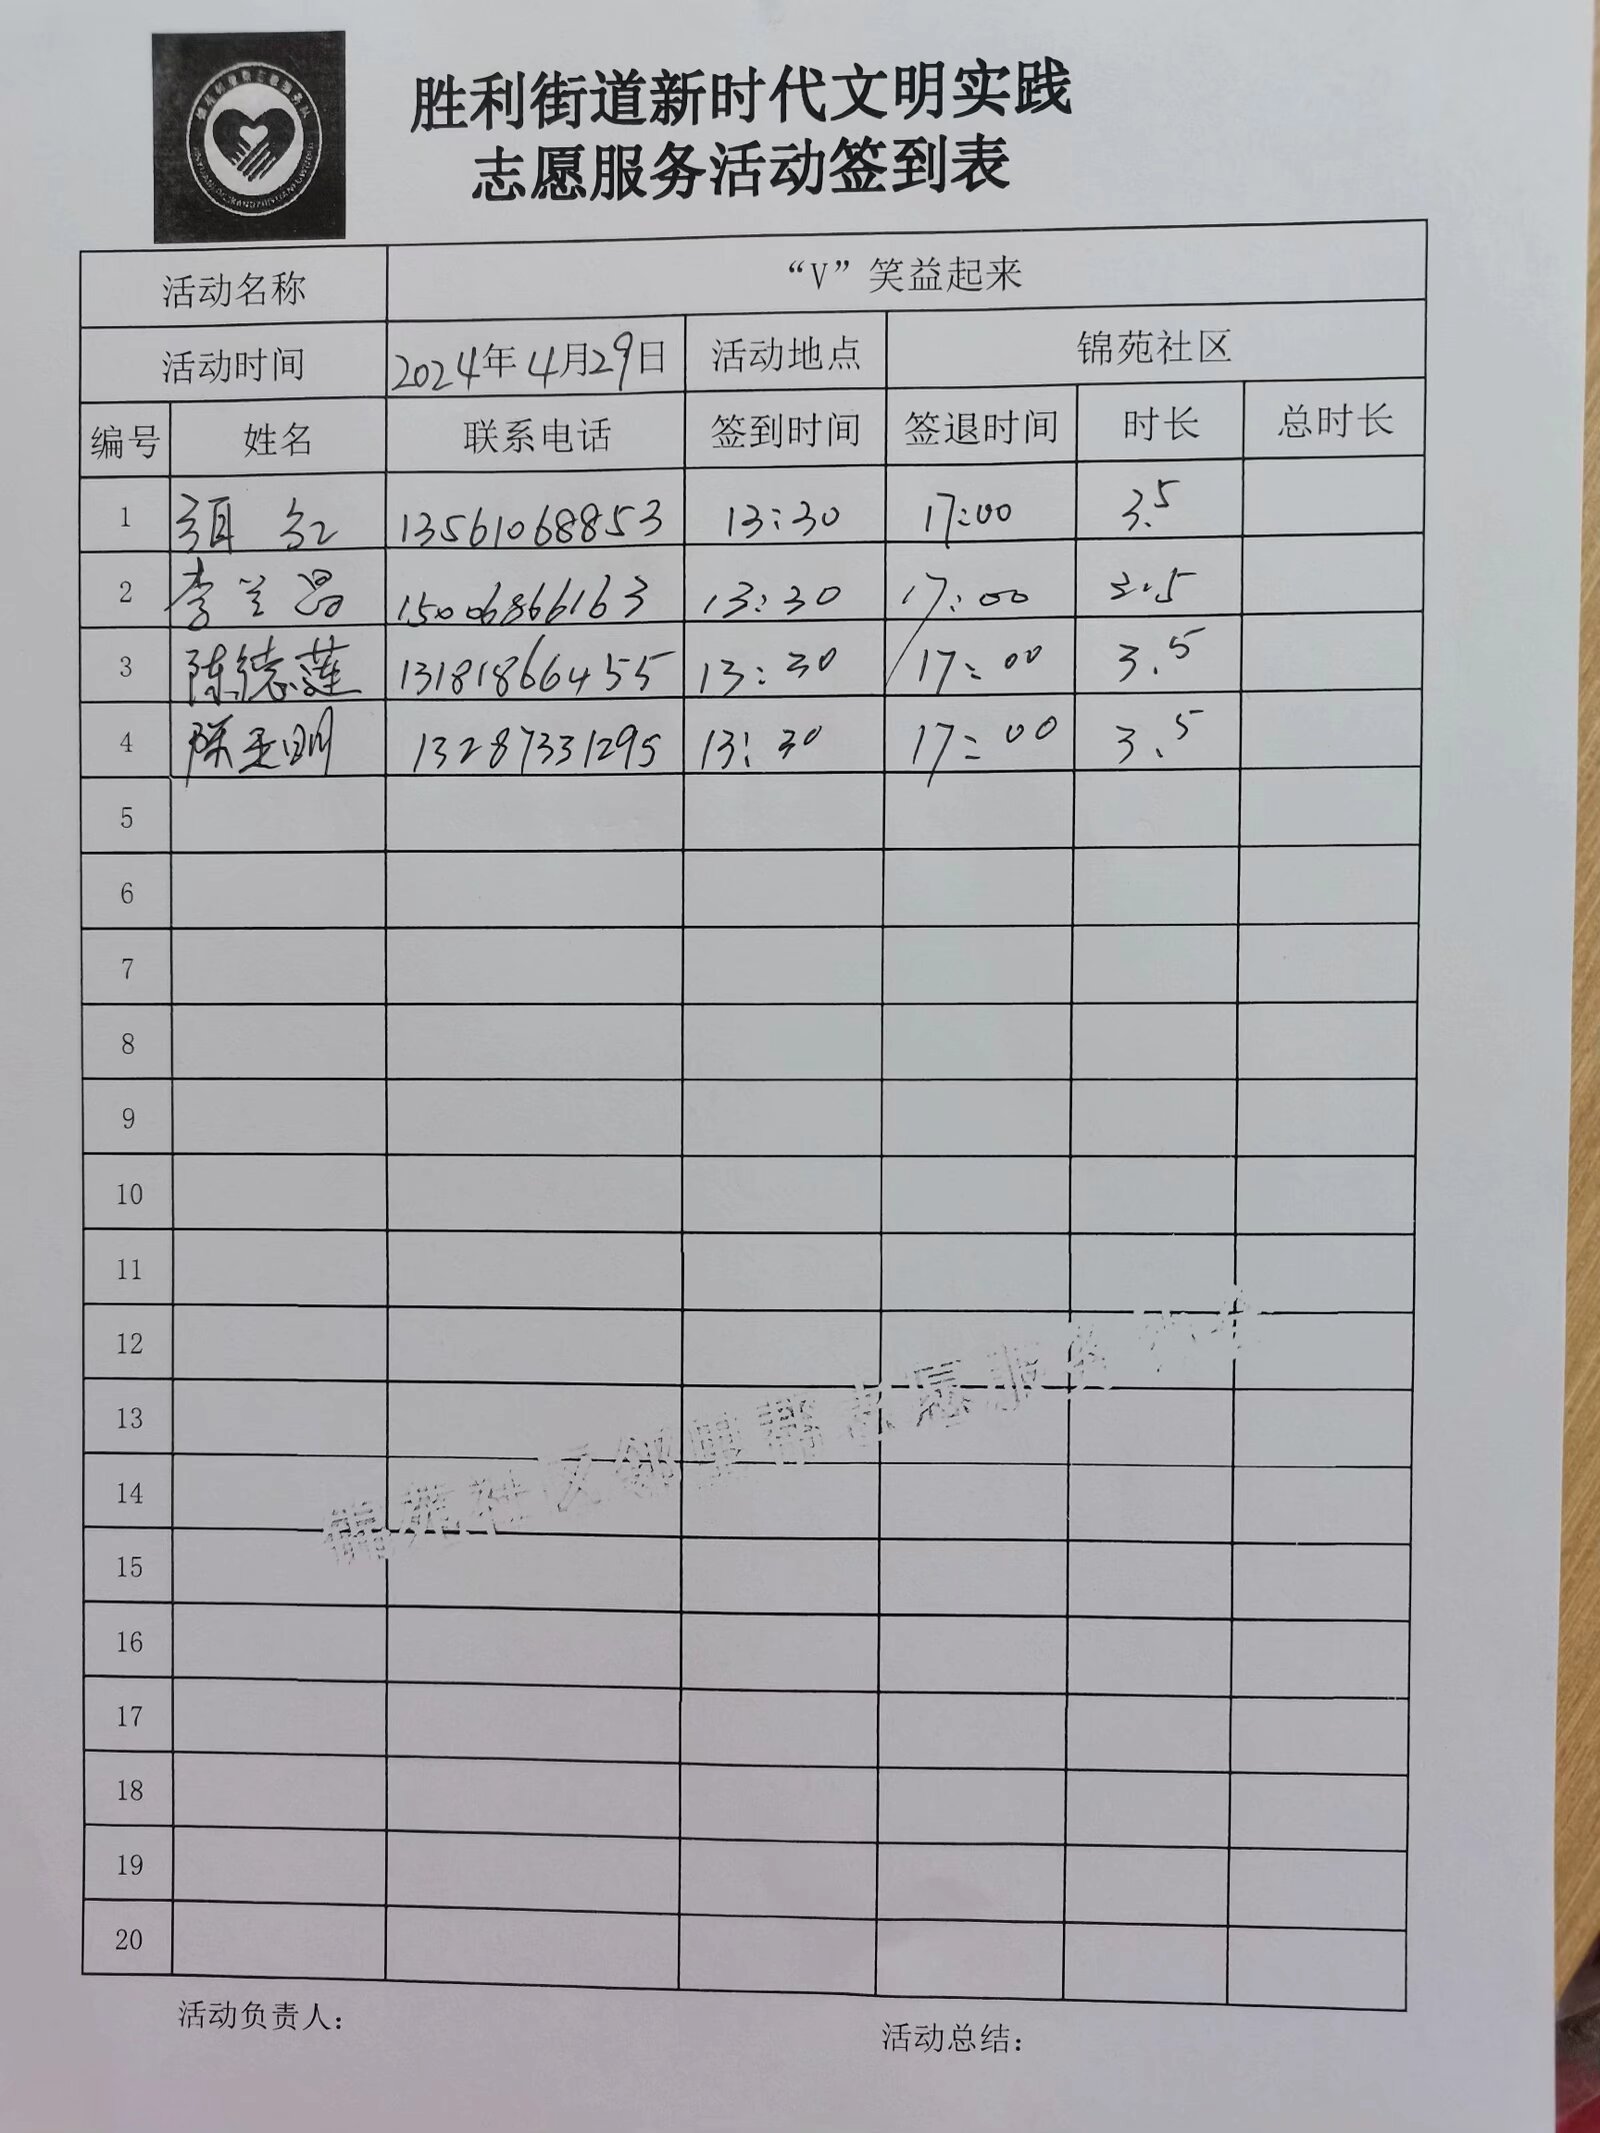 胜利街道新时代文明实践
志愿服务活动签到表
活动名称 “V”笑益起来
活动时间 2024年4月29日 活动地点 锦苑社区
编号 姓名 联系电话 签到时间 签退时间 时长 总时长
1 红 13561068853 13:30 17:00 3.5
2 李兰昌 15006866163 13:30 17:00 3.5
3 陈德莲 13181866455 13:30 17:00 3.5
4 陈玉明 13287331295 13:30 17:00 3.5
5
6
7
8
9
10
11
12
13
14
锦苑社区邻里帮志愿服务
15
16
17
18
19
20
活动负责人：
活动总结：